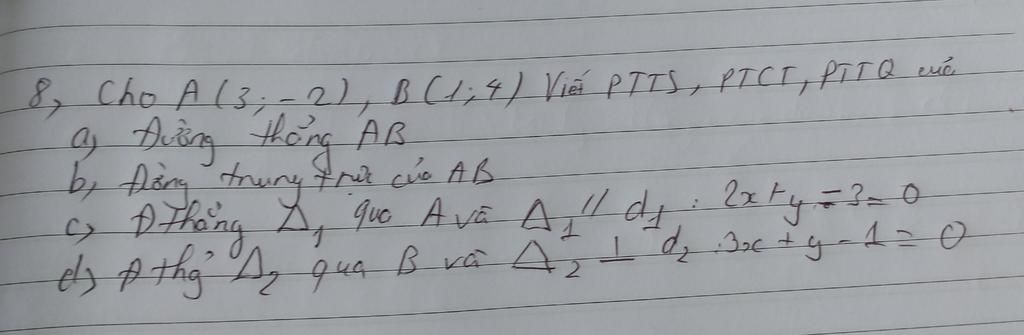 8, Cho A(3;-2), B(1;4) Viết PTTS, PTCT, PTTQ cuả
a) Đường thẳng AB
b, Đường trung trực của AB
c, Đ thẳng Δ₁ qua A và Δ₁ // d₁ : 2x + y = 3 = 0
d) Đ thg̉ Δ₂ qua B và Δ₂ ⊥ d₂ : 3x + y - 1 = 0